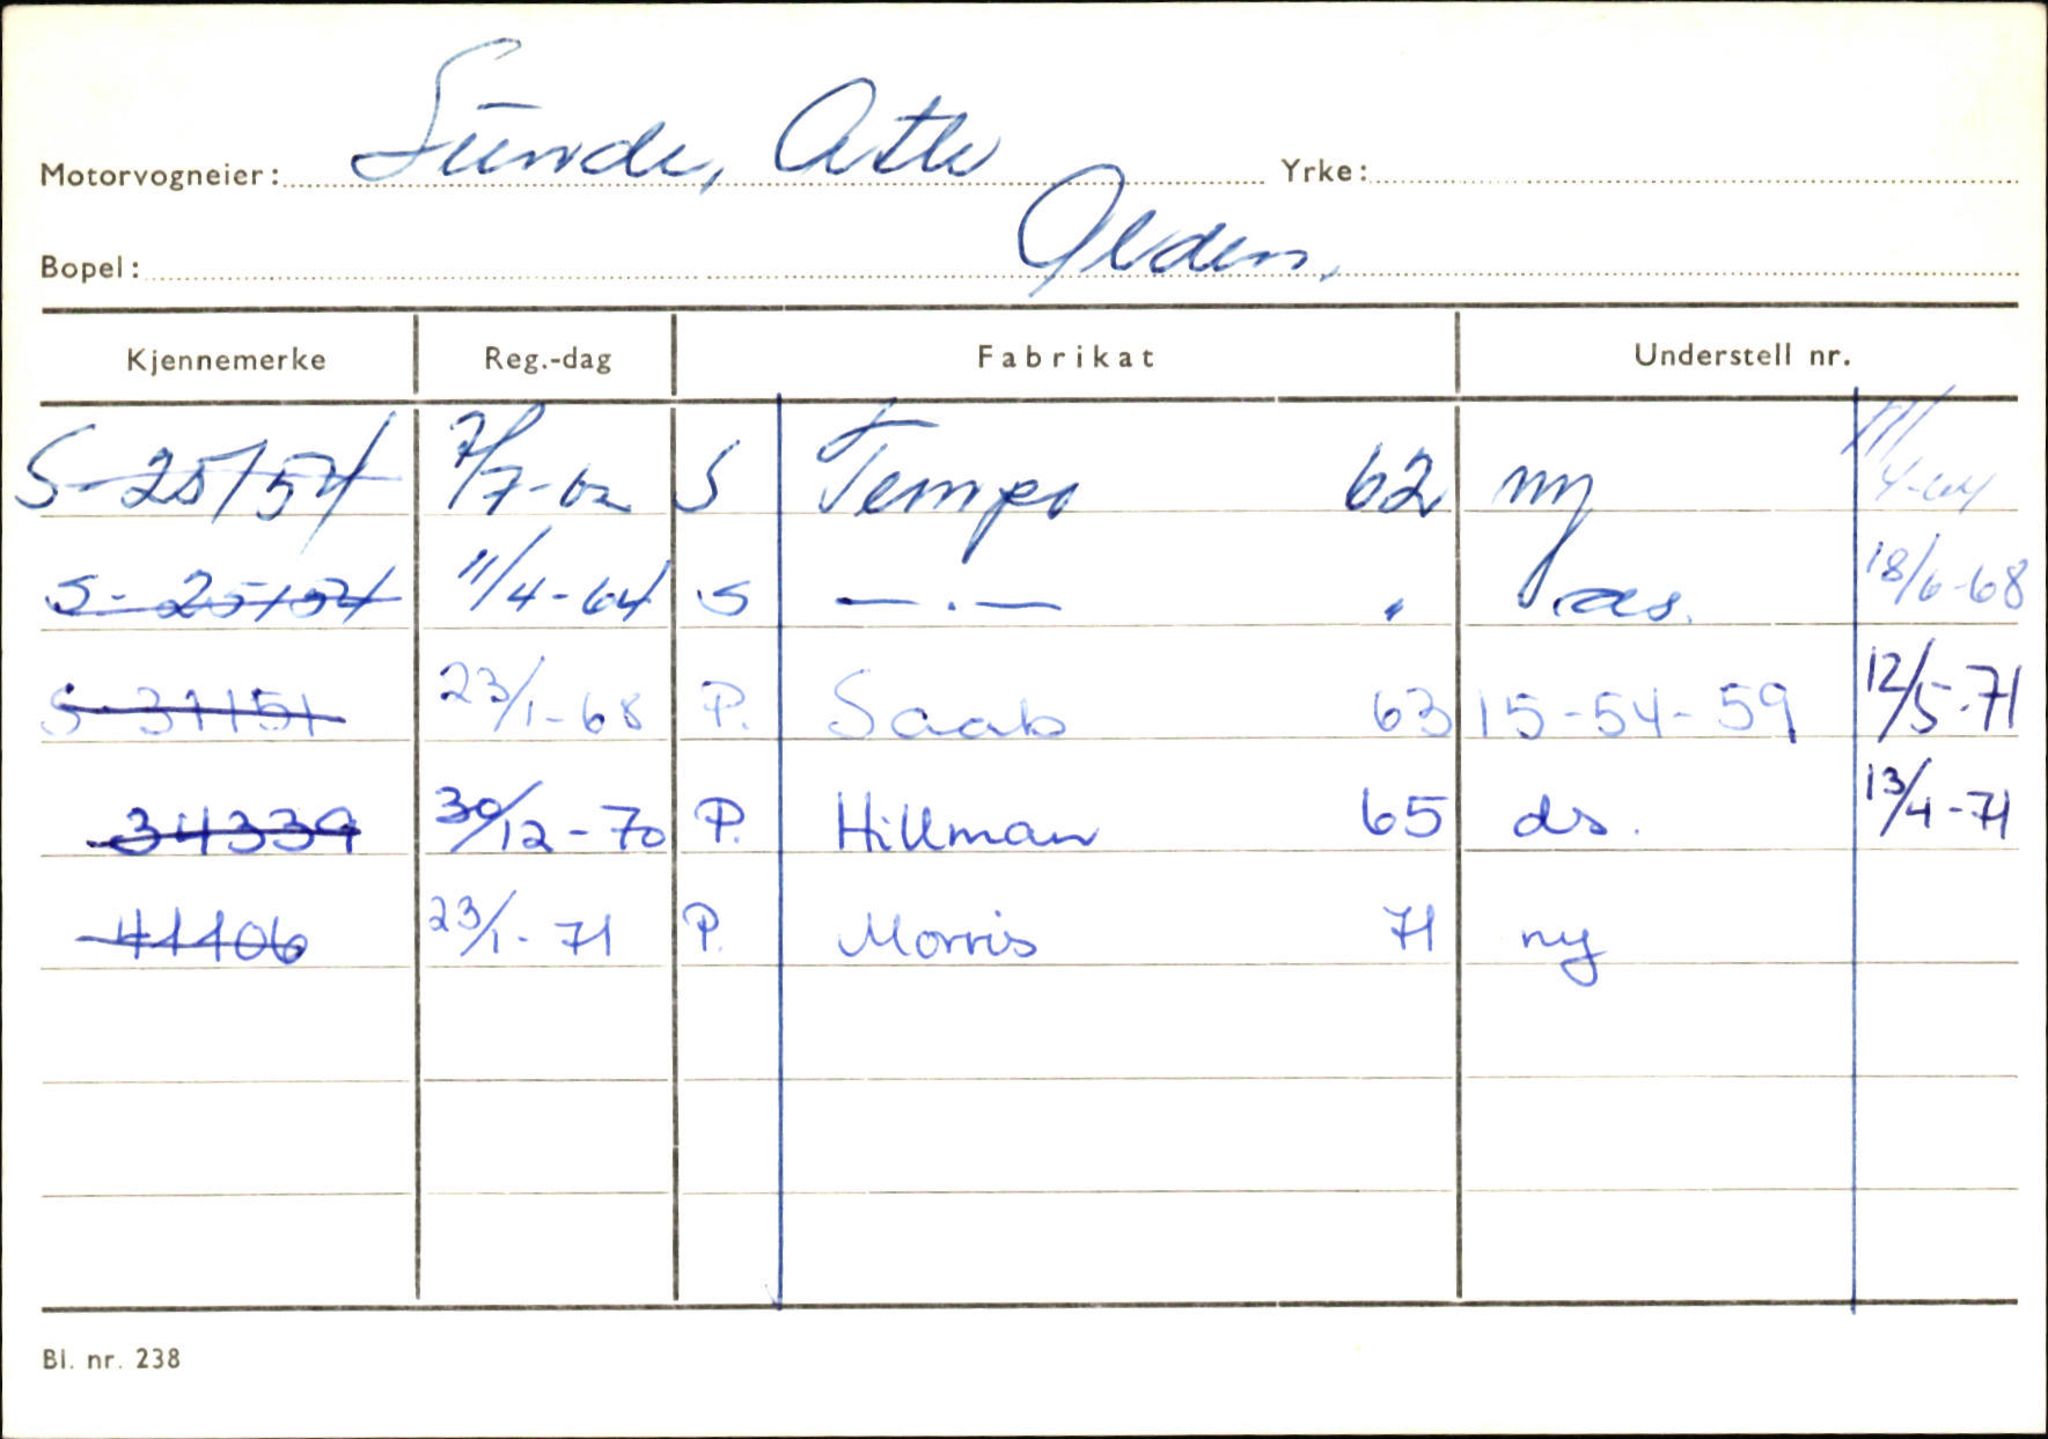 Motorvogneier: Sunde, Atle Yrke:
Bopel: Olden,
Kjennemerke Reg.-dag Fabrikat Understell nr.
S-25154 7/7-62 S Tempo 62 ny 11/4-64
S-25154 11/4-64 S —.— " ds. 18/6-68
S-31151 23/1-68 P. Saab 63 15-54-59 12/5-71
34339 30/12-70 P. Hillman 65 ds. 13/4-71
41106 23/1-71 P. Morris 71 ny
Bl. nr. 238